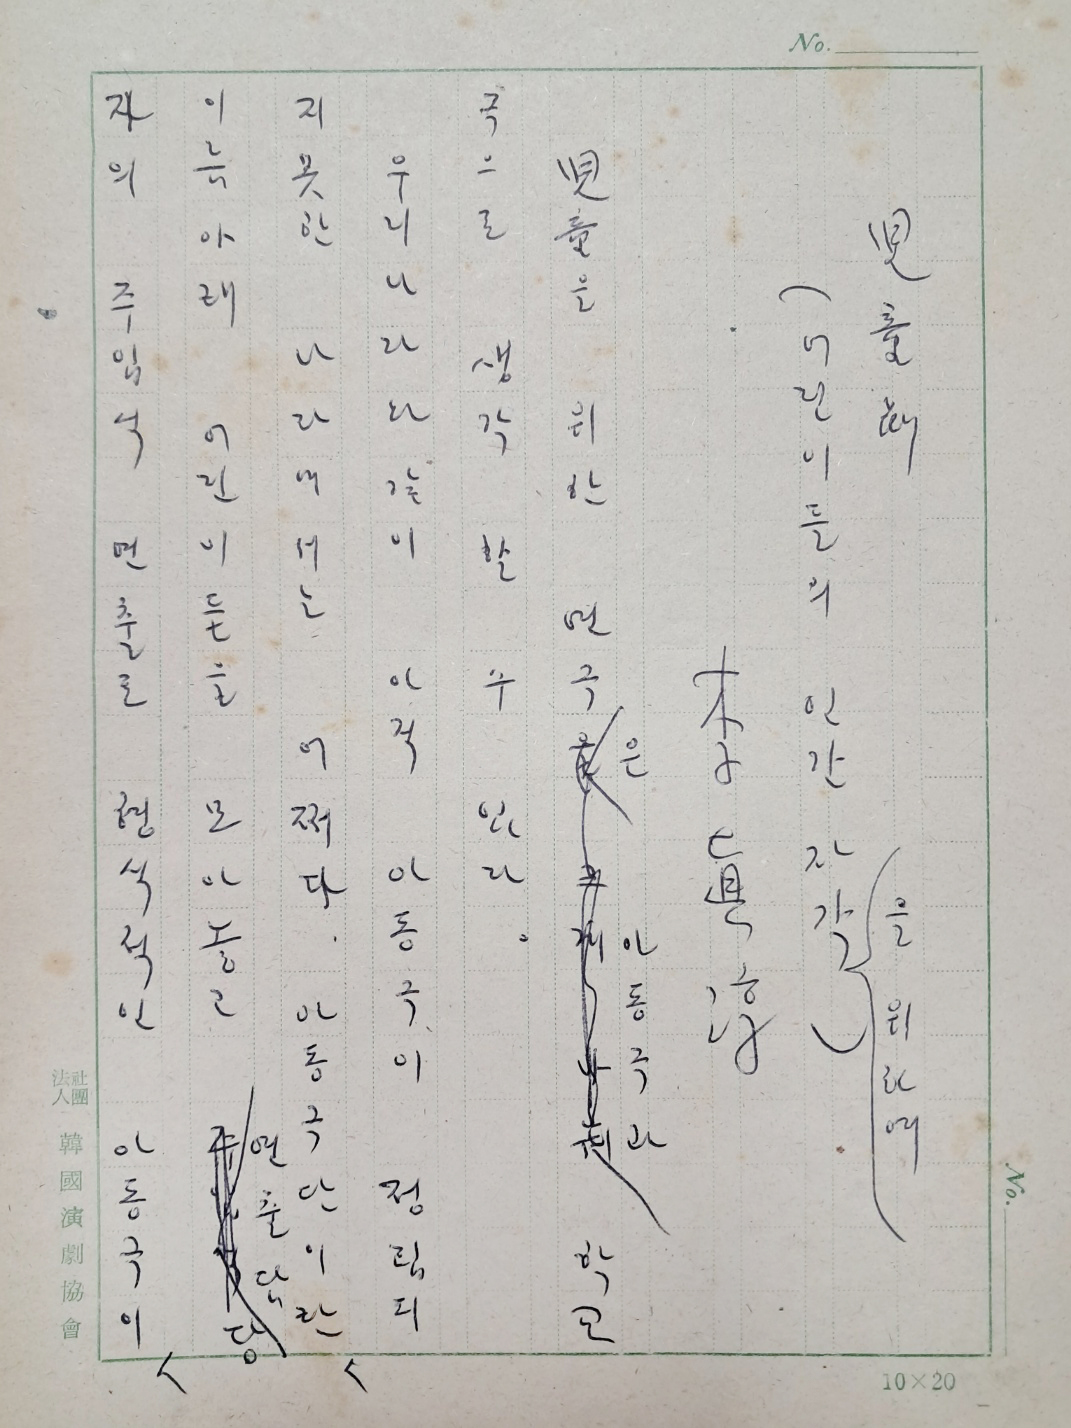 No.
兒童劇
(어린이들의 인간 자각)
을 위하여
李眞淳
兒童을 위한 연극은 아동극과 학교
극으로 생각 할 수 있다.
우리나라와 같이 아직 아동극이 정립되
지 못한 나라에서는 어쩌다. 아동극단이란
이름 아래 어린이들을 모아놓고 연출담당
자의 주입식 연출로 형식적인 아동극이
No.
社團法人 韓國演劇協會
10×20